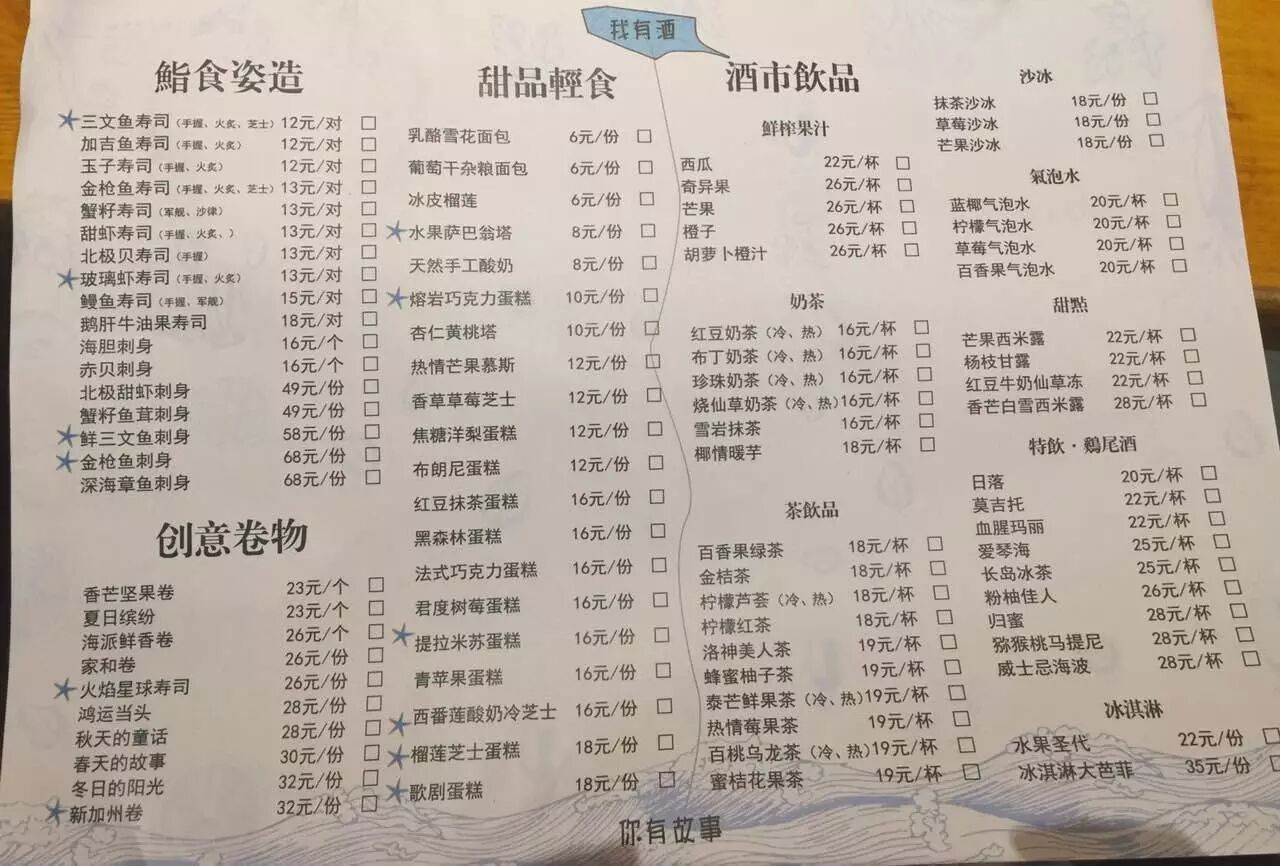 我有酒
鮨食姿造
三文鱼寿司（手握、火炙、芝士） 12元/对 □
加吉鱼寿司（手握、火炙） 12元/对 □
玉子寿司（手握、火炙） 12元/对 □
金枪鱼寿司（手握、火炙、芝士） 13元/对 □
蟹籽寿司（军舰、沙律） 13元/对 □
甜虾寿司（手握、火炙、） 13元/对 □
北极贝寿司（手握） 13元/对 □
玻璃虾寿司（手握、火炙） 13元/对 □
鳗鱼寿司（手握、军舰） 15元/对 □
鹅肝牛油果寿司 18元/对 □
海胆刺身 16元/个 □
赤贝刺身 16元/个 □
北极甜虾刺身 49元/份 □
蟹籽鱼茸刺身 49元/份 □
鲜三文鱼刺身 58元/份 □
金枪鱼刺身 68元/份 □
深海章鱼刺身 68元/份 □
创意卷物
香芒坚果卷 23元/个 □
夏日缤纷 23元/个 □
海派鲜香卷 26元/个 □
家和卷 26元/份 □
火焰星球寿司 26元/份 □
鸿运当头 28元/份 □
秋天的童话 28元/份 □
春天的故事 30元/份 □
冬日的阳光 32元/份 □
新加州卷 32元/份 □
甜品輕食
乳酪雪花面包 6元/份 □
葡萄干杂粮面包 6元/份 □
冰皮榴莲 6元/份 □
水果萨巴翁塔 8元/份 □
天然手工酸奶 8元/份 □
熔岩巧克力蛋糕 10元/份 □
杏仁黄桃塔 10元/份 □
热情芒果慕斯 12元/份 □
香草草莓芝士 12元/份 □
焦糖洋梨蛋糕 12元/份 □
布朗尼蛋糕 12元/份 □
红豆抹茶蛋糕 16元/份 □
黑森林蛋糕 16元/份 □
法式巧克力蛋糕 16元/份 □
君度树莓蛋糕 16元/份 □
提拉米苏蛋糕 16元/份 □
青苹果蛋糕 16元/份 □
西番莲酸奶冷芝士 16元/份 □
榴莲芝士蛋糕 18元/份 □
歌剧蛋糕 18元/份 □
酒市飲品
鮮榨果汁
西瓜 22元/杯 □
奇异果 26元/杯 □
芒果 26元/杯 □
橙子 26元/杯 □
胡萝卜橙汁 26元/杯 □
奶茶
红豆奶茶（冷、热） 16元/杯 □
布丁奶茶（冷、热） 16元/杯 □
珍珠奶茶（冷、热） 16元/杯 □
烧仙草奶茶（冷、热）16元/杯 □
雪岩抹茶 16元/杯 □
椰情暖芋 18元/杯 □
茶飲品
百香果绿茶 18元/杯 □
金桔茶 18元/杯 □
柠檬芦荟（冷、热） 18元/杯 □
柠檬红茶 18元/杯 □
洛神美人茶 19元/杯 □
蜂蜜柚子茶 19元/杯 □
泰芒鲜果茶（冷、热）19元/杯 □
热情莓果茶 19元/杯 □
百桃乌龙茶（冷、热）19元/杯 □
蜜桔花果茶 19元/杯 □
沙冰
抹茶沙冰 18元/份 □
草莓沙冰 18元/份 □
芒果沙冰 18元/份 □
氣泡水
蓝椰气泡水 20元/杯 □
柠檬气泡水 20元/杯 □
草莓气泡水 20元/杯 □
百香果气泡水 20元/杯 □
甜點
芒果西米露 22元/杯 □
杨枝甘露 22元/杯 □
红豆牛奶仙草冻 22元/杯 □
香芒白雪西米露 28元/杯 □
特飲·鷄尾酒
日落 20元/杯 □
莫吉托 22元/杯 □
血腥玛丽 22元/杯 □
爱琴海 25元/杯 □
长岛冰茶 25元/杯 □
粉柚佳人 26元/杯 □
归蜜 28元/杯 □
猕猴桃马提尼 28元/杯 □
威士忌海波 28元/杯 □
冰淇淋
水果圣代 22元/份 □
冰淇淋大芭菲 35元/份 □
你有故事